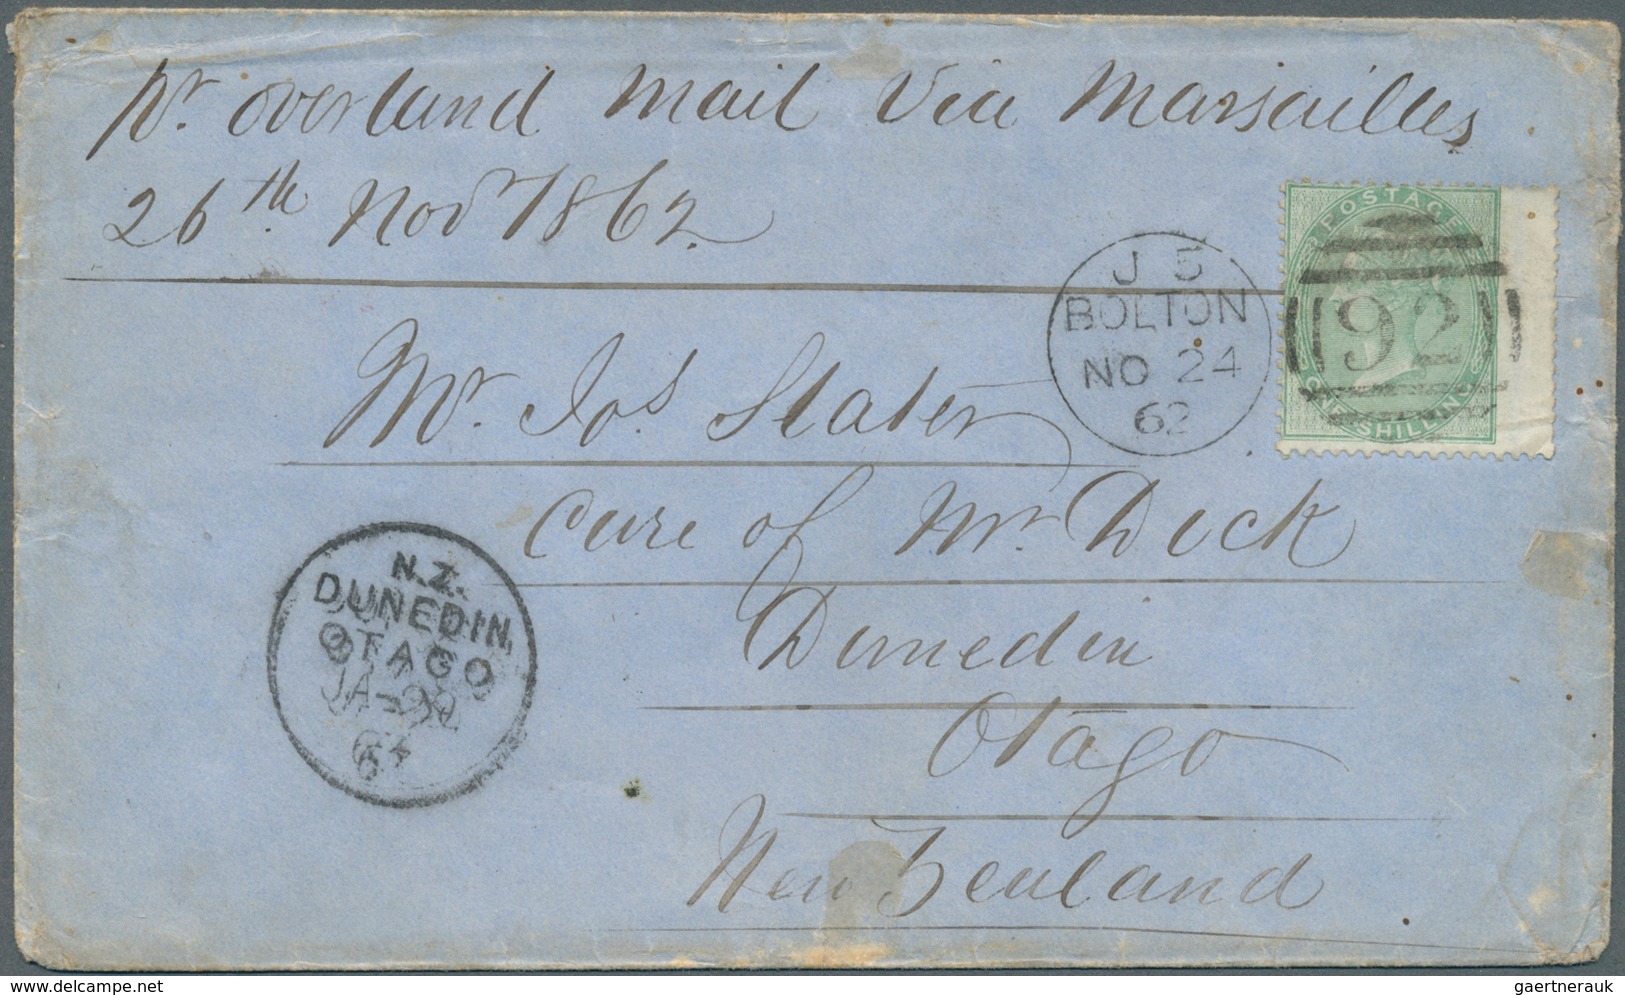 pr. overland mail via Marsailles
26th Novr 1862
POSTAGE
J 5
BOLTON
NO 24
62
92
SHILLING
Mr. Jos Slater
Care of Mr. Dick
N.Z.
DUNEDIN
OTAGO
JA
63
Dunedin
Otago
New Zealand
gaertnerauk